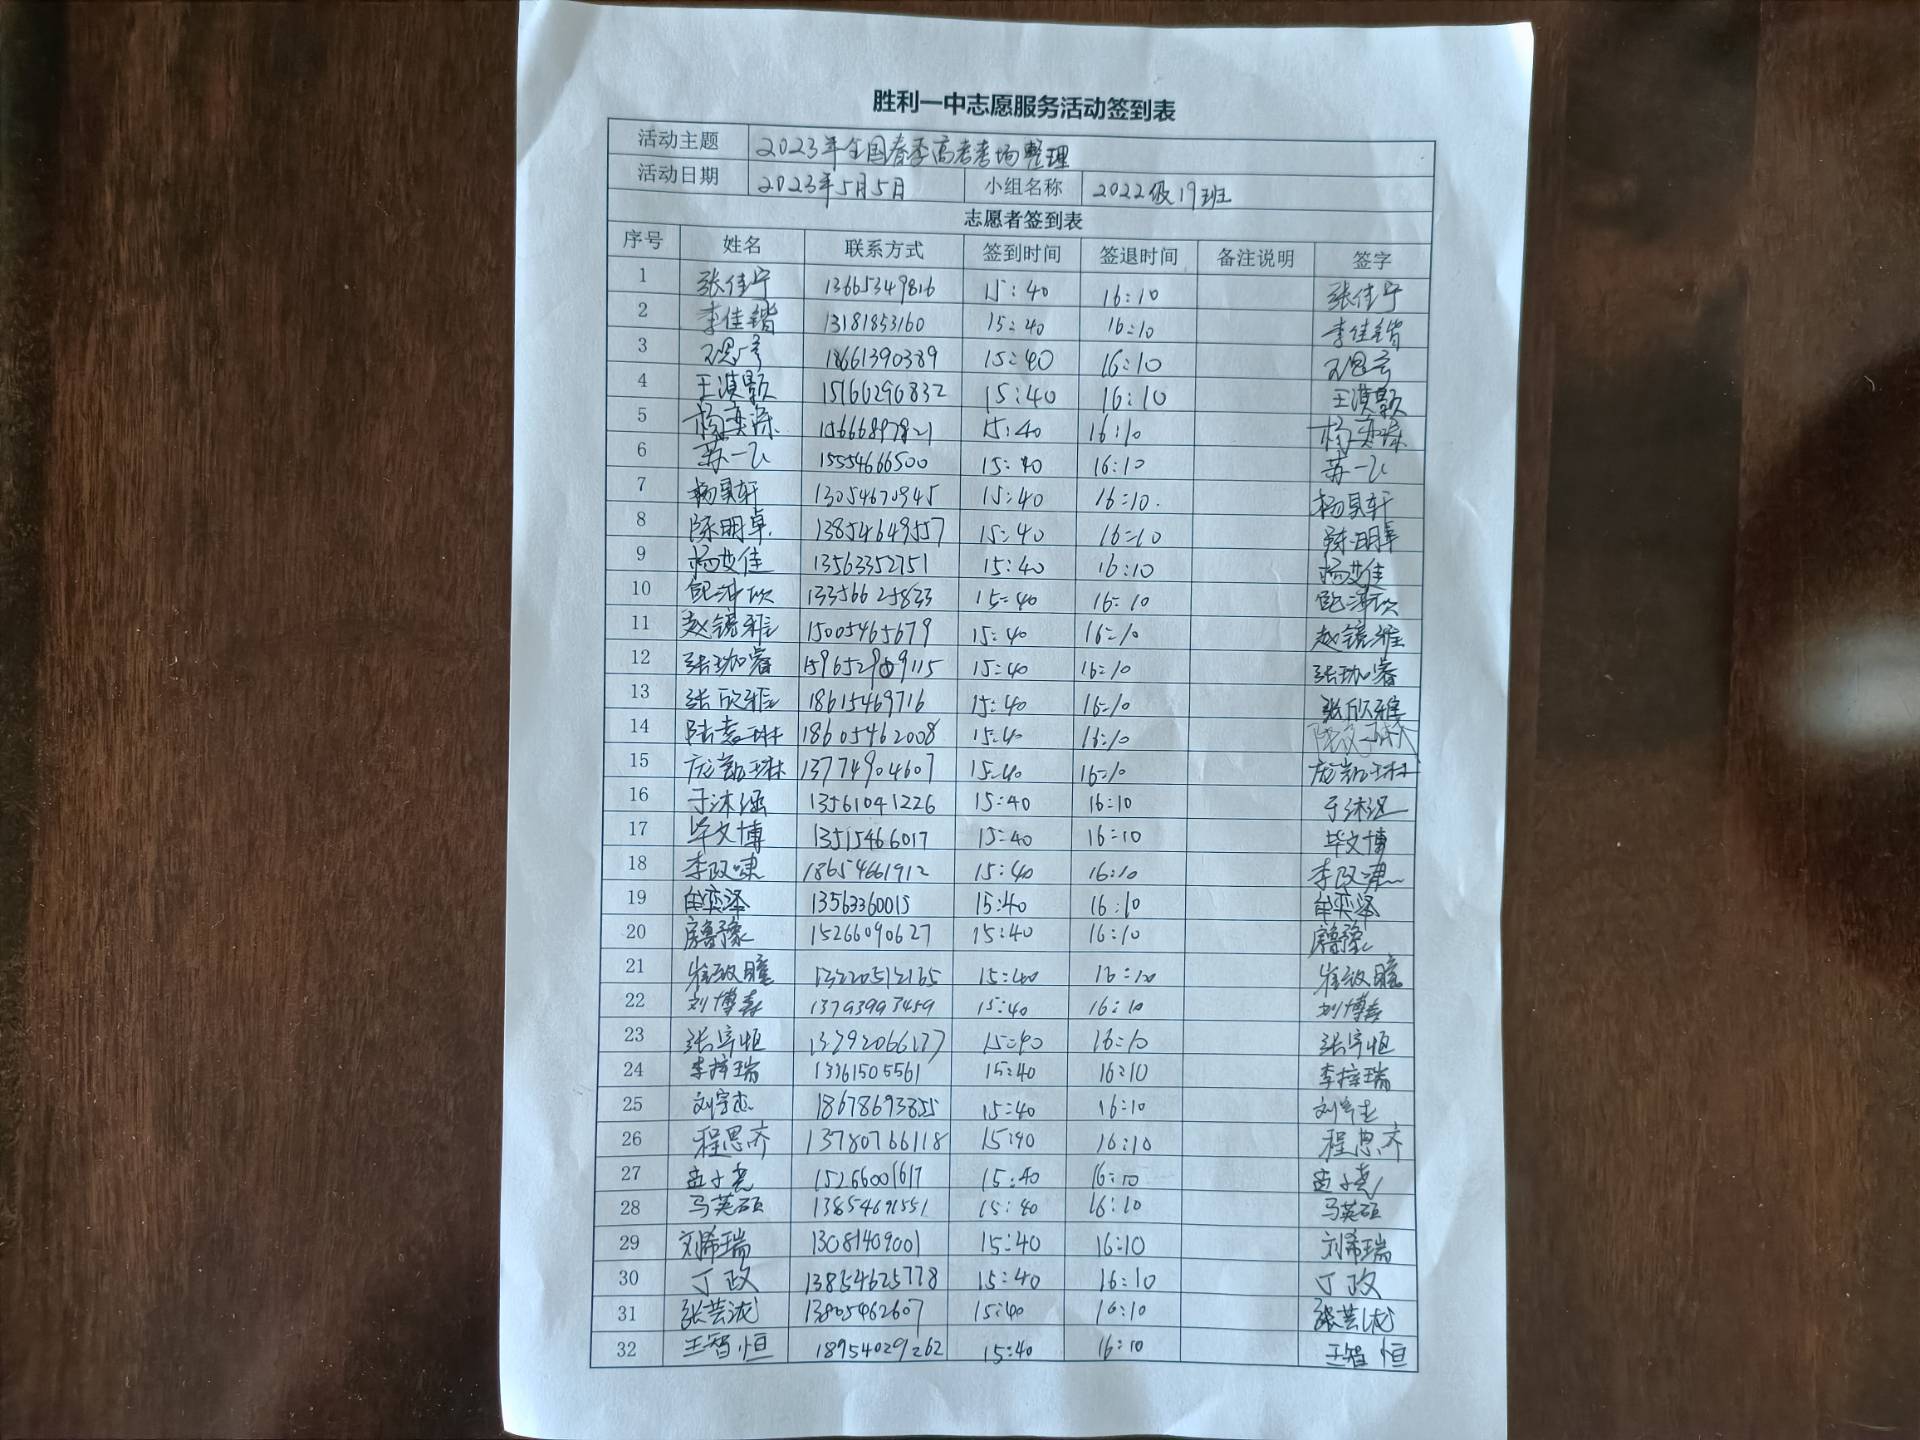 胜利一中志愿服务活动签到表
活动主题 2023年全国春季高考考场整理
活动日期 2023年5月5日 小组名称 2022级19班
志愿者签到表
序号 姓名 联系方式 签到时间 签退时间 备注说明 签字
1 张佳宁 13665349816 15:40 16:10 张佳宁
2 李佳锴 13181853160 15:40 16:10 李佳锴
3 18661390389 15:40 16:10
4 王滇颢 15166296832 15:40 16:10 王滇颢
5 杨奕添 15666897821 15:40 16:10 杨奕添
6 苏一飞 15554666500 15:40 16:10 苏一飞
7 杨昊轩 13054670945 15:40 16:10 杨昊轩
8 陈明卓 13854649557 15:40 16:10 陈明卓
9 杨艾佳 13563352751 15:40 16:10 杨艾佳
10 13356625833 15:40 16:10
11 赵镜雅 15005465679 15:40 16:10 赵镜雅
12 张珈睿 15965299115 15:40 16:10 张珈睿
13 张欣雅 18615469716 15:40 16:10 张欣雅
14 陆嘉琳 18605462008 15:40 16:10
15 庞凯琳 13774904607 15:40 16:10 庞凯琳
16 于沐涵 13561041226 15:40 16:10 于沐涵
17 毕文博 13515466017 15:40 16:10 毕文博
18 李政啸 18654661912 15:40 16:10 李政啸
19 牟奕泽 13563360015 15:40 16:10 牟奕泽
20 房鲁豫 15266090627 15:40 16:10 房鲁豫
21 崔政瞳 13220512165 15:40 16:10 崔政瞳
22 刘博森 13793993459 15:40 16:10 刘博森
23 张宇恒 13792066177 15:40 16:10 张宇恒
24 李梓瑞 13361505561 15:40 16:10 李梓瑞
25 刘宇杰 18678693855 15:40 16:10 刘宇杰
26 程思齐 13780766118 15:40 16:10 程思齐
27 孟子尧 15266001617 15:40 16:10 孟子尧
28 马英硕 13854691551 15:40 16:10 马英硕
29 刘希瑞 13081409001 15:40 16:10 刘希瑞
30 丁政 13854625778 15:40 16:10 丁政
31 张芸泷 13805462607 15:40 16:10 张芸泷
32 王智恒 18954029262 15:40 16:10 王智恒